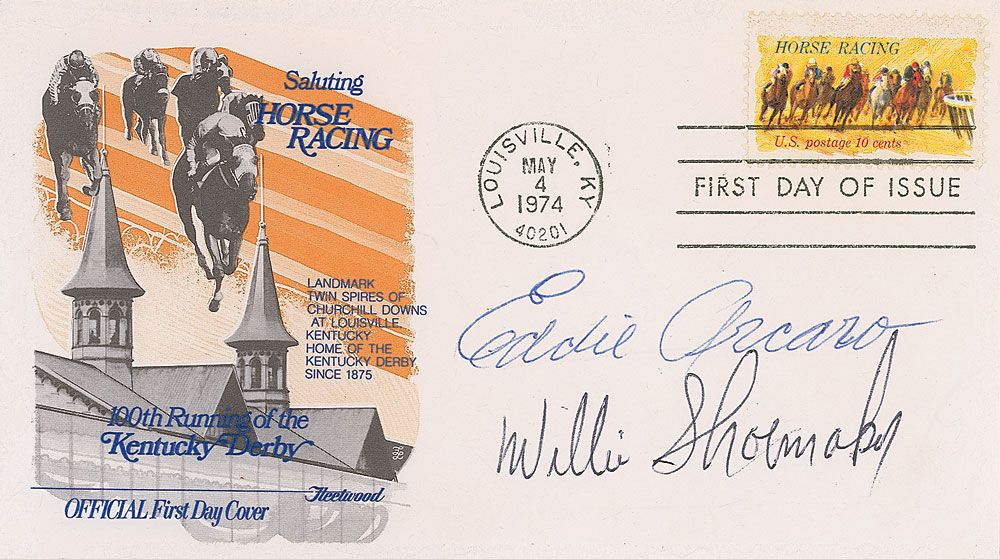 Saluting
HORSE
RACING
LANDMARK
TWIN SPIRES OF
CHURCHILL DOWNS
AT LOUISVILLE,
KENTUCKY
HOME OF THE
KENTUCKY DERBY
SINCE 1875
100th Running of the
Kentucky Derby
Fleetwood
OFFICIAL First Day Cover
LOUISVILLE, KY
MAY
4
1974
40201
HORSE RACING
U.S. postage 10 cents
FIRST DAY OF ISSUE
Eddie Arcaro
Willie Shoemaker